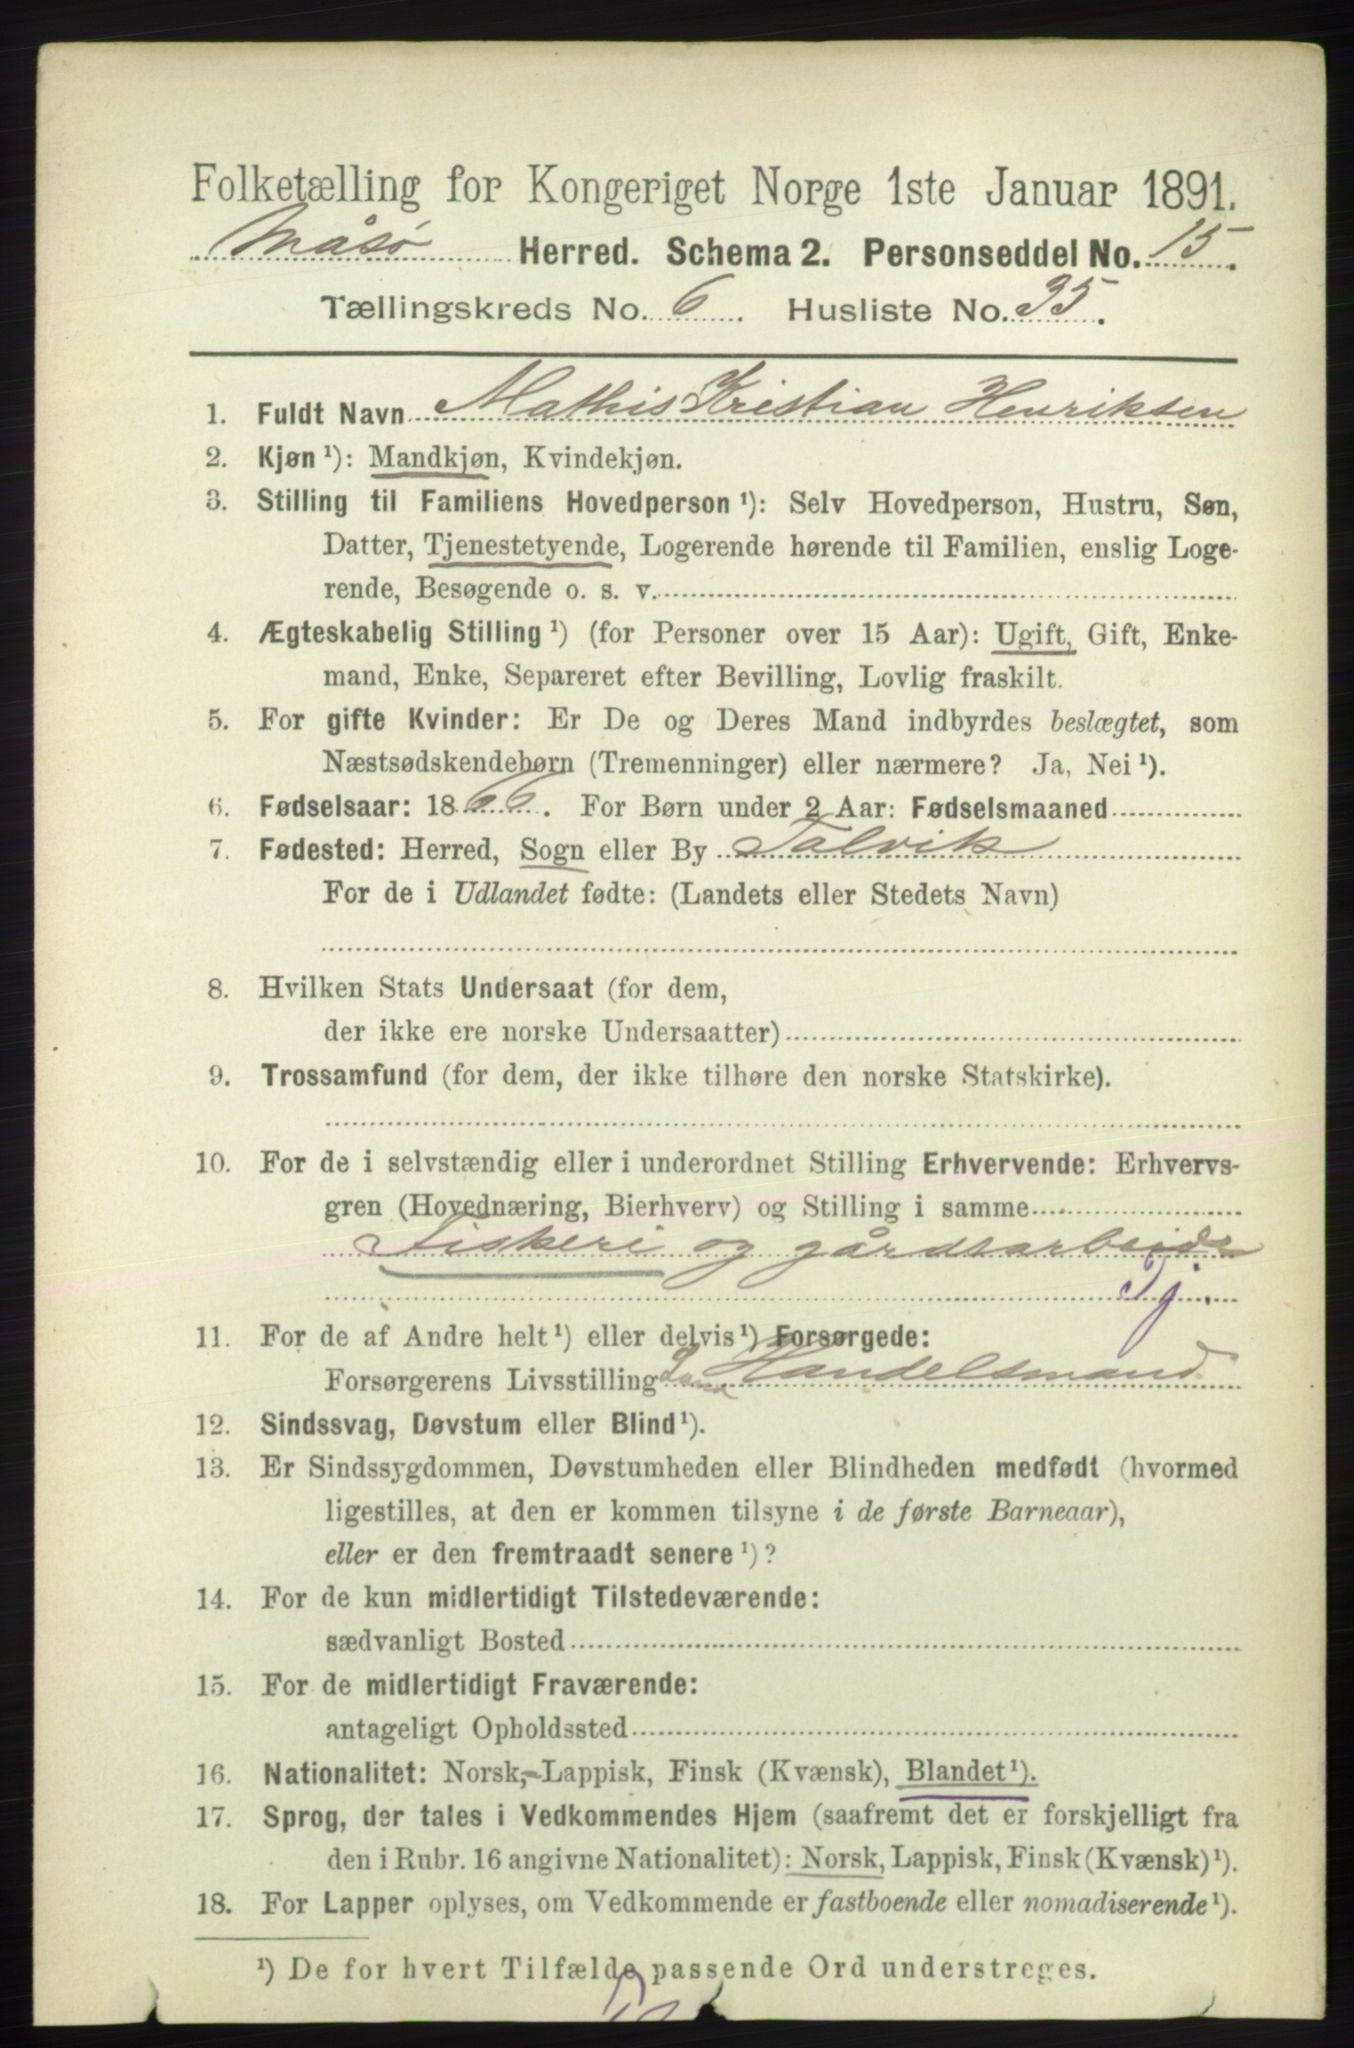 Folketælling for Kongeriget Norge 1ste Januar 1891.
Måsø Herred. Schema 2. Personseddel No. 15.
Tællingskreds No. 6. Husliste No. 35.
1. Fuldt Navn Mathis Kristian Henriksen
2. Kjøn ¹): Mandkjøn, Kvindekjøn.
3. Stilling til Familiens Hovedperson ¹): Selv Hovedperson, Hustru, Søn,
Datter, Tjenestetyende, Logerende hørende til Familien, enslig Loge-
rende, Besøgende o. s. v.
4. Ægteskabelig Stilling ¹) (for Personer over 15 Aar): Ugift, Gift, Enke-
mand, Enke, Separeret efter Bevilling, Lovlig fraskilt.
5. For gifte Kvinder: Er De og Deres Mand indbyrdes beslægtet, som
Næstsødskendebørn (Tremenninger) eller nærmere? Ja, Nei ¹).
6. Fødselsaar: 1866. For Børn under 2 Aar: Fødselsmaaned
7. Fødested: Herred, Sogn eller By Talvik
For de i Udlandet fødte: (Landets eller Stedets Navn)
8. Hvilken Stats Undersaat (for dem,
der ikke ere norske Undersaatter)
9. Trossamfund (for dem, der ikke tilhøre den norske Statskirke).
10. For de i selvstændig eller i underordnet Stilling Erhvervende: Erhvervs-
gren (Hovednæring, Bierhverv) og Stilling i samme
Fiskeri og gårdsarbeide
Tj.
11. For de af Andre helt ¹) eller delvis ¹) Forsørgede:
Forsørgerens Livsstilling Handelsmand
12. Sindssvag, Døvstum eller Blind ¹).
13. Er Sindssygdommen, Døvstumheden eller Blindheden medfødt (hvormed
ligestilles, at den er kommen tilsyne i de første Barneaar),
eller er den fremtraadt senere ¹)?
14. For de kun midlertidigt Tilstedeværende:
sædvanligt Bosted
15. For de midlertidigt Fraværende:
antageligt Opholdssted
16. Nationalitet: Norsk, Lappisk, Finsk (Kvænsk), Blandet ¹).
17. Sprog, der tales i Vedkommendes Hjem (saafremt det er forskjelligt fra
den i Rubr. 16 angivne Nationalitet): Norsk, Lappisk, Finsk (Kvænsk) ¹).
18. For Lapper oplyses, om Vedkommende er fastboende eller nomadiserende ¹).
¹) De for hvert Tilfælde passende Ord understreges.